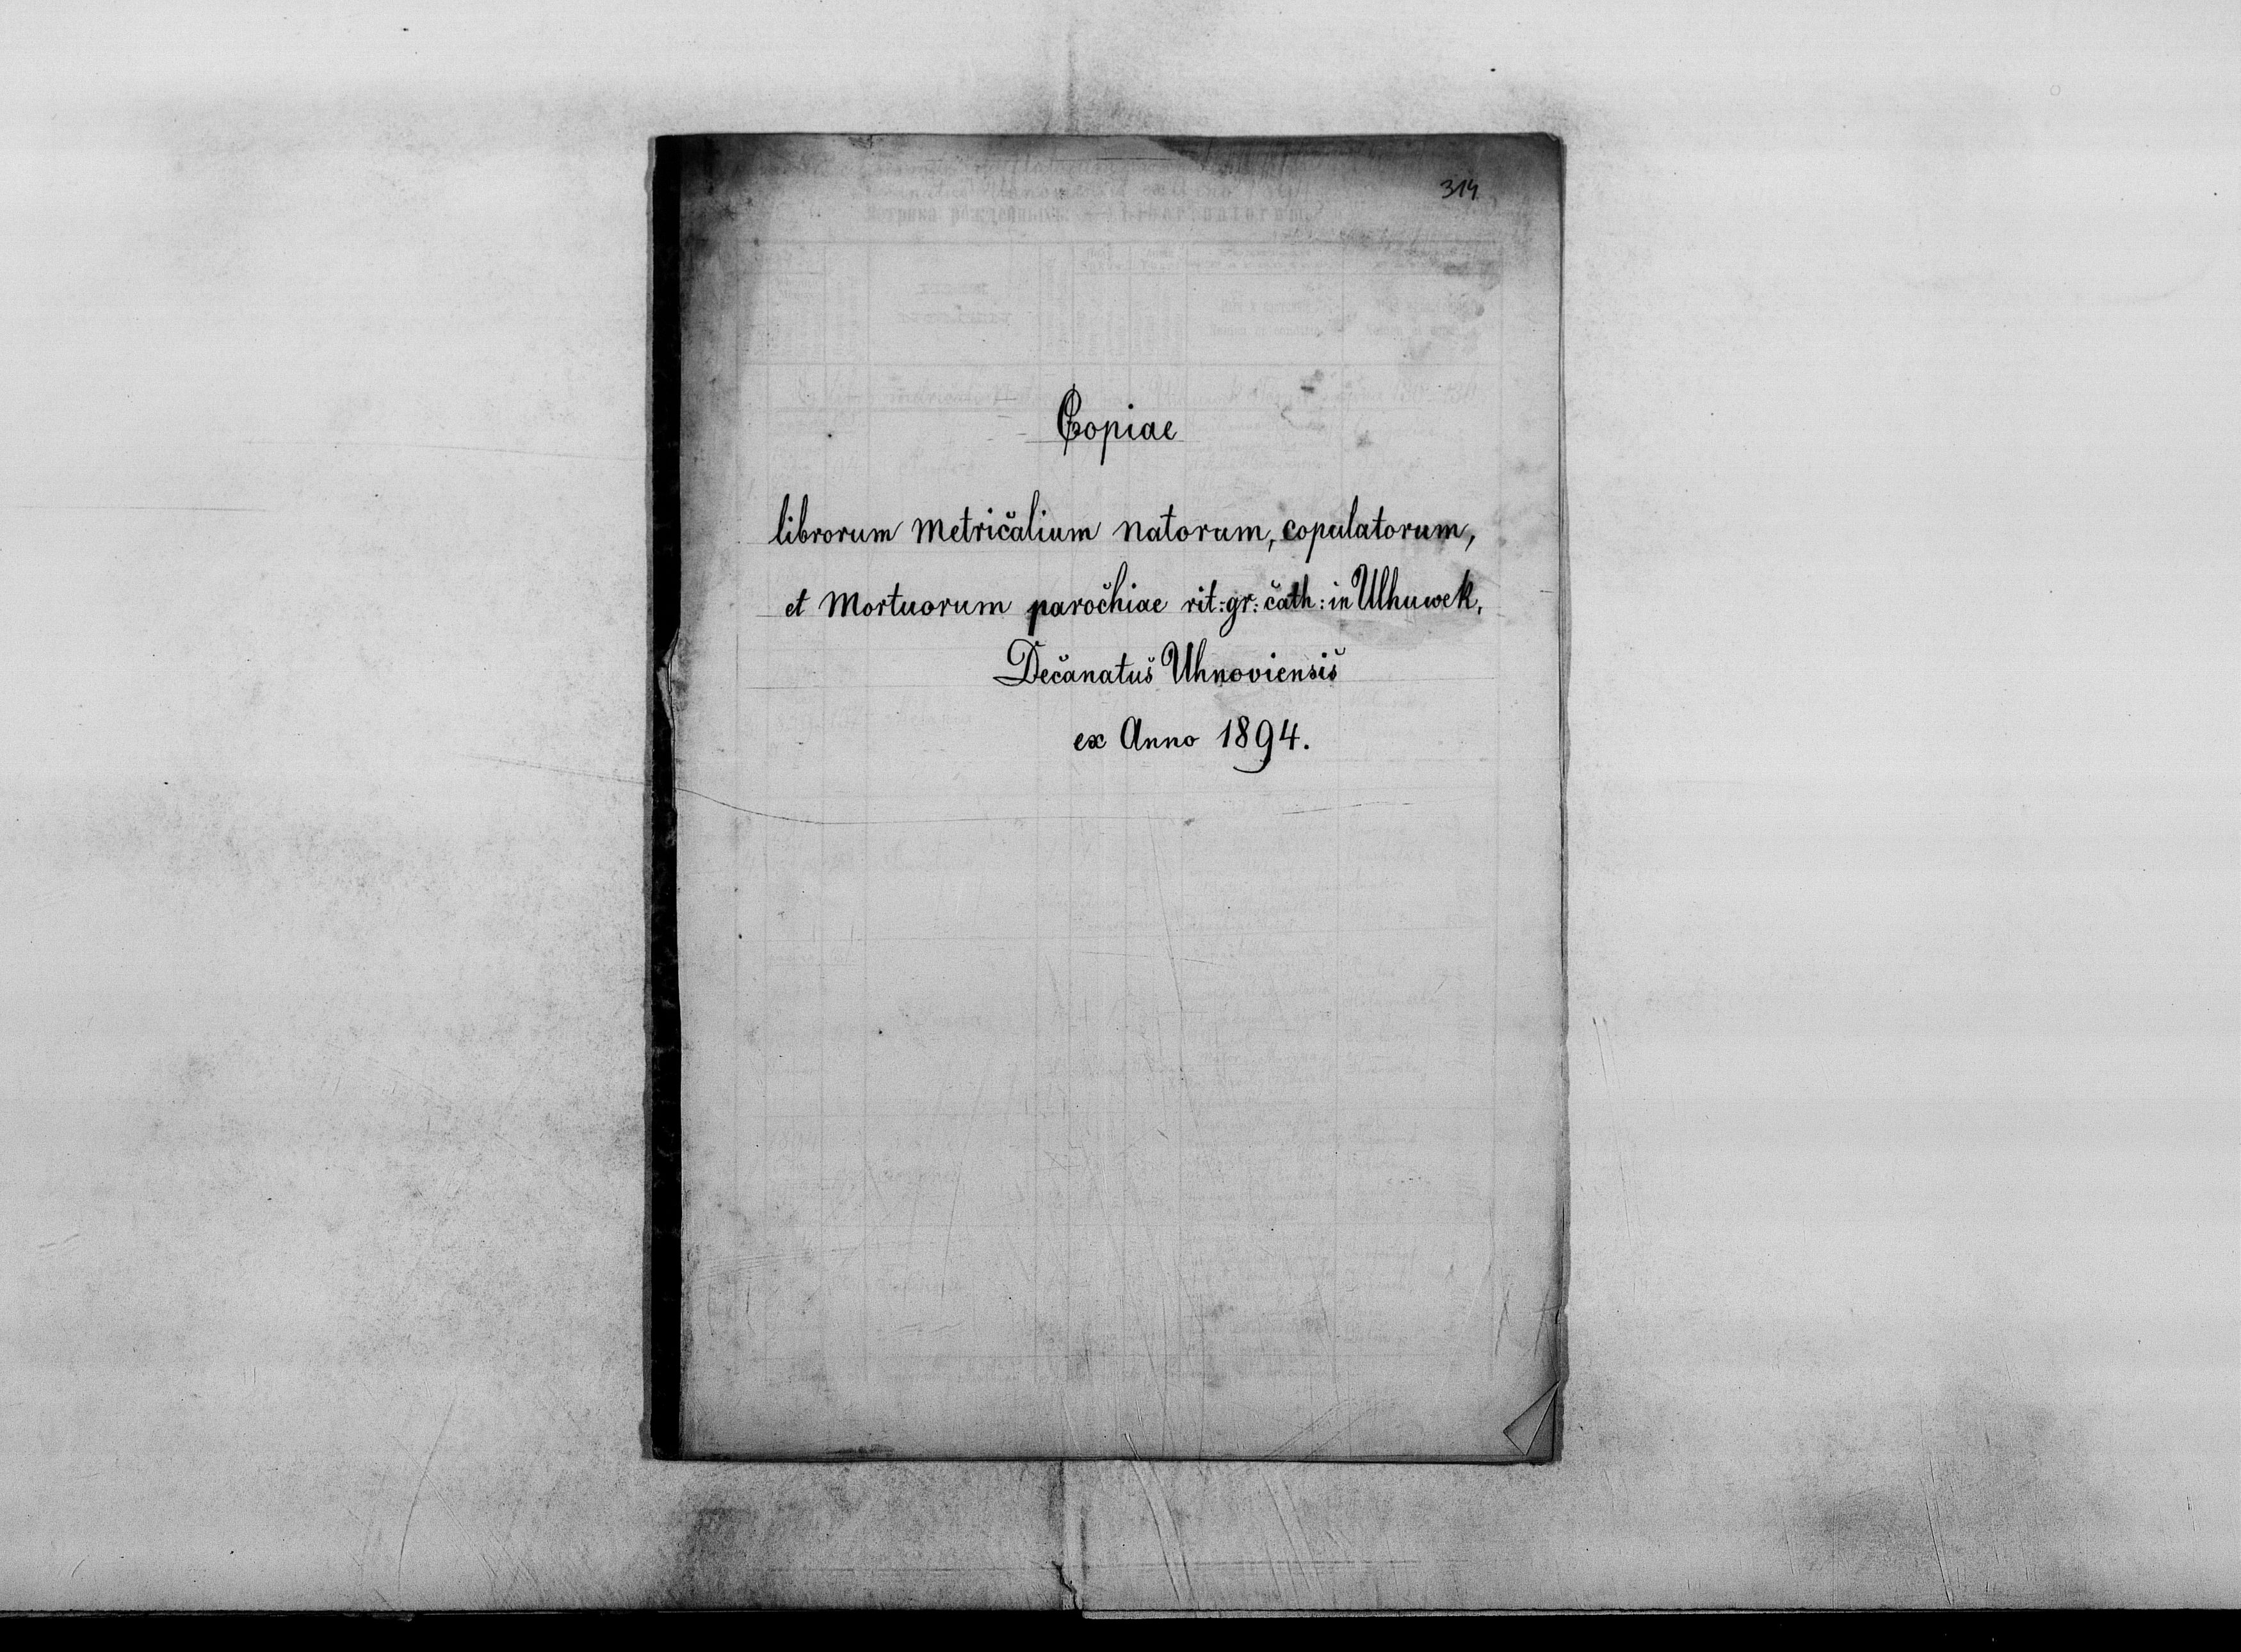 314
Copiae
librorum metričalium natorum, copulatorum,
et mortuorum paročhiae rit: gr: čath: in Ulhuwek,
Dečanatuš Uhnoviensiš
ex Anno 1894.